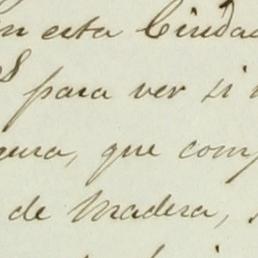 en esta Ciudad
para ver si
que comp
de Madera,